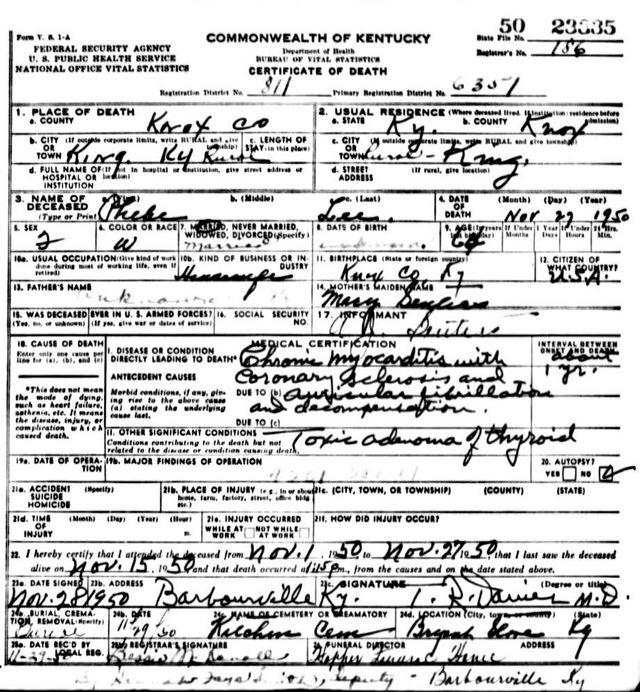 Form V. S. 1-A
FEDERAL SECURITY AGENCY
U. S. PUBLIC HEALTH SERVICE
NATIONAL OFFICE VITAL STATISTICS
COMMONWEALTH OF KENTUCKY
Department of Health
BUREAU OF VITAL STATISTICS
CERTIFICATE OF DEATH
50 23535
State File No.
Registrar's No. 186
Registration District No. 811 Primary Registration District No. 6351
1. PLACE OF DEATH
a. COUNTY Knox Co
2. USUAL RESIDENCE (Where deceased lived. If institution: residence before admission)
a. STATE Ky. b. COUNTY Knox
b. CITY (If outside corporate limits, write RURAL and give township) OR TOWN King, Ky Rural
c. LENGTH OF STAY (in this place)
c. CITY (If outside corporate limits, write RURAL and give township) OR TOWN Rural - King
d. FULL NAME OF (If not in hospital or institution, give street address or location) HOSPITAL OR INSTITUTION
d. STREET ADDRESS (If rural, give location)
3. NAME OF DECEASED (Type or Print) a. (First) Phebe b. (Middle) c. (Last) Lee
4. DATE OF DEATH (Month) (Day) (Year) Nov 27 1950
5. SEX F
6. COLOR OR RACE W
7. MARRIED, NEVER MARRIED, WIDOWED, DIVORCED (Specify) Married
8. DATE OF BIRTH
9. AGE (In years last birthday) If Under 1 Year Months Days If Under 24 Hrs. Hours Min.
10a. USUAL OCCUPATION (Give kind of work done during most of working life, even if retired) Housewife
10b. KIND OF BUSINESS OR INDUSTRY
11. BIRTHPLACE (State or foreign country) Knox Co, Ky
12. CITIZEN OF WHAT COUNTRY? U.S.A.
13. FATHER'S NAME
14. MOTHER'S MAIDEN NAME Mary
15. WAS DECEASED EVER IN U. S. ARMED FORCES? (Yes, no, or unknown) (If yes, give war or dates of service)
16. SOCIAL SECURITY NO.
17. INFORMANT
18. CAUSE OF DEATH
Enter only one cause per line for (a), (b), and (c)
*This does not mean the mode of dying, such as heart failure, asthenia, etc. It means the disease, injury, or complication which caused death.
MEDICAL CERTIFICATION
INTERVAL BETWEEN ONSET AND DEATH
about 1 yr.
I. DISEASE OR CONDITION DIRECTLY LEADING TO DEATH* (a) Chronic myocarditis with
ANTECEDENT CAUSES Coronary sclerosis and
Morbid conditions, if any, giving rise to the above cause (a) stating the underlying cause last.
DUE TO (b) auricular fibrillation
and decompensation.
DUE TO (c)
II. OTHER SIGNIFICANT CONDITIONS
Conditions contributing to the death but not related to the disease or condition causing death.
Toxic adenoma of thyroid
19a. DATE OF OPERATION
19b. MAJOR FINDINGS OF OPERATION
20. AUTOPSY? YES NO
21a. ACCIDENT SUICIDE HOMICIDE (Specify)
21b. PLACE OF INJURY (e.g., in or about home, farm, factory, street, office bldg., etc.)
21c. (CITY, TOWN, OR TOWNSHIP) (COUNTY) (STATE)
21d. TIME OF INJURY (Month) (Day) (Year) (Hour) m.
21e. INJURY OCCURRED WHILE AT WORK NOT WHILE AT WORK
21f. HOW DID INJURY OCCUR?
22. I hereby certify that I attended the deceased from Nov. 1 1950 to Nov. 27 1950 that I last saw the deceased
alive on Nov. 15 1950 and that death occurred at m., from the causes and on the date stated above.
23a. DATE SIGNED Nov. 28 1950
23b. ADDRESS Barbourville Ky.
23c. SIGNATURE (Degree or title) M.D.
24a. BURIAL, CREMATION, REMOVAL (Specify) Burial
24b. DATE 11/29/50
24c. NAME OF CEMETERY OR CREMATORY Cem
24d. LOCATION (City, town, or county) (State) Ky
25a. DATE REC'D BY LOCAL REG. 11-29-50
25b. REGISTRAR'S SIGNATURE
26. FUNERAL DIRECTOR ADDRESS
Hopper Funeral Home
deputy - Barbourville Ky